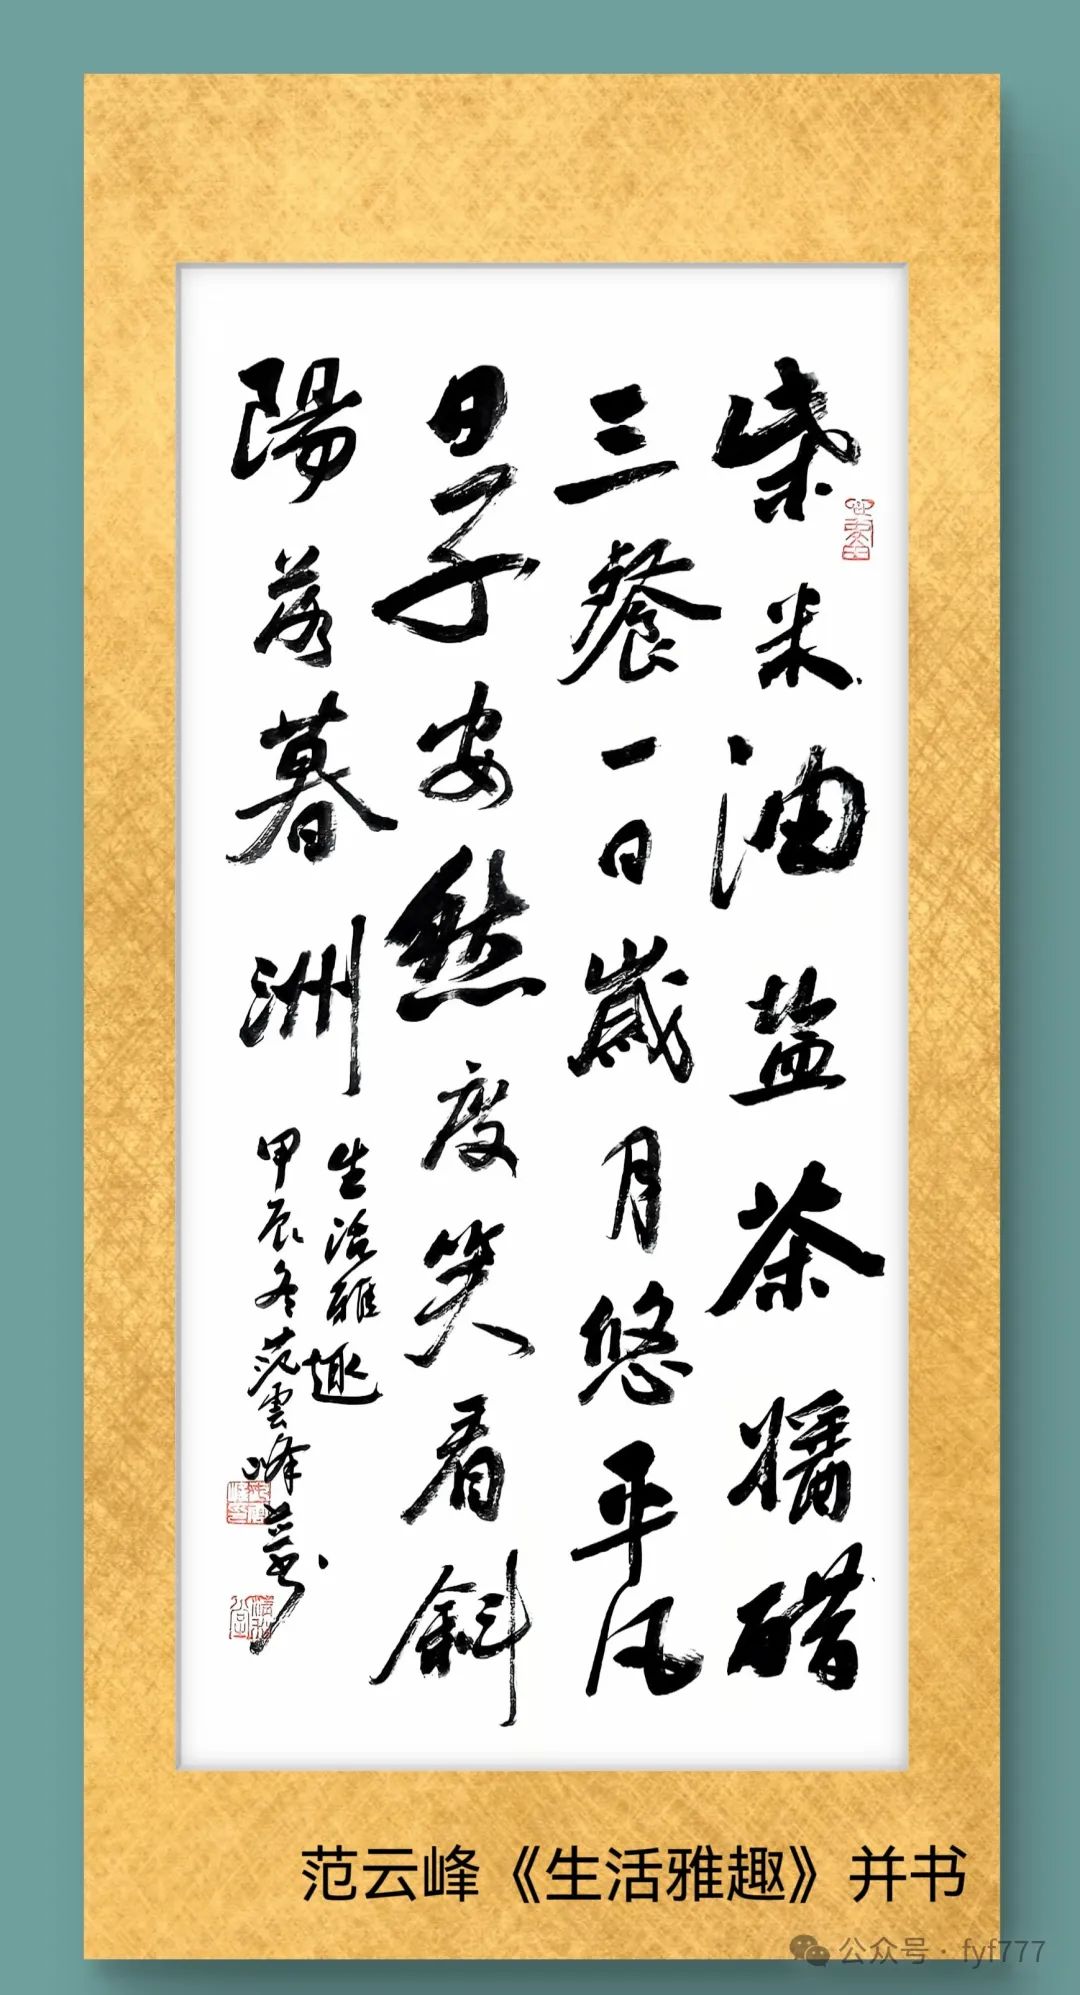 柴米油盐茶酱醋
三餐一日岁月悠平风
日子安然度笑看斜
陽落暮洲
生活雅趣
甲辰冬范雲峰
范云峰《生活雅趣》并书
公众号·fyf777